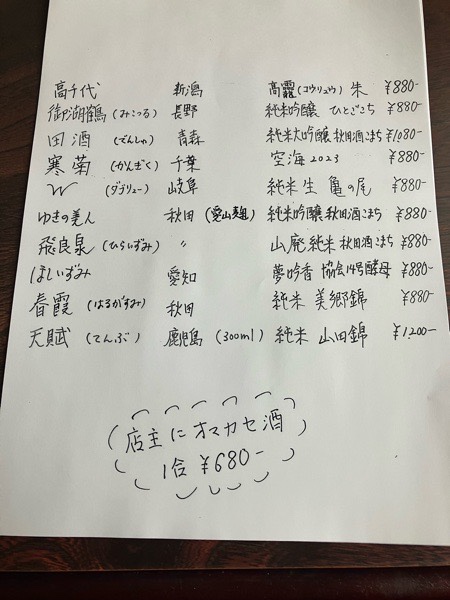 高千代 新潟 高龗(コウリュウ) 朱 ¥880-
御湖鶴(みこつる) 長野 純米吟醸 ひとごこち ¥880-
田酒 (でんしゅ) 青森 純米大吟醸 秋田酒こまち ¥1,080-
寒菊 (かんぎく) 千葉 空海 2023 ¥880-
W (ダブリュー) 岐阜 純米生 亀の尾 ¥880-
ゆきの美人 秋田 (愛山麹) 純米吟醸 秋田酒こまち ¥880-
飛良泉 (ひらいずみ) 〃 山廃純米 秋田酒こまち ¥880-
ほしいずみ 愛知 夢吟香 協会14号酵母 ¥880-
春霞 (はるがすみ) 秋田 純米 美郷錦 ¥880-
天賦 (てんぶ) 鹿児島 (300ml) 純米 山田錦 ¥1,200-
店主にオマカセ酒
1合 ¥680-